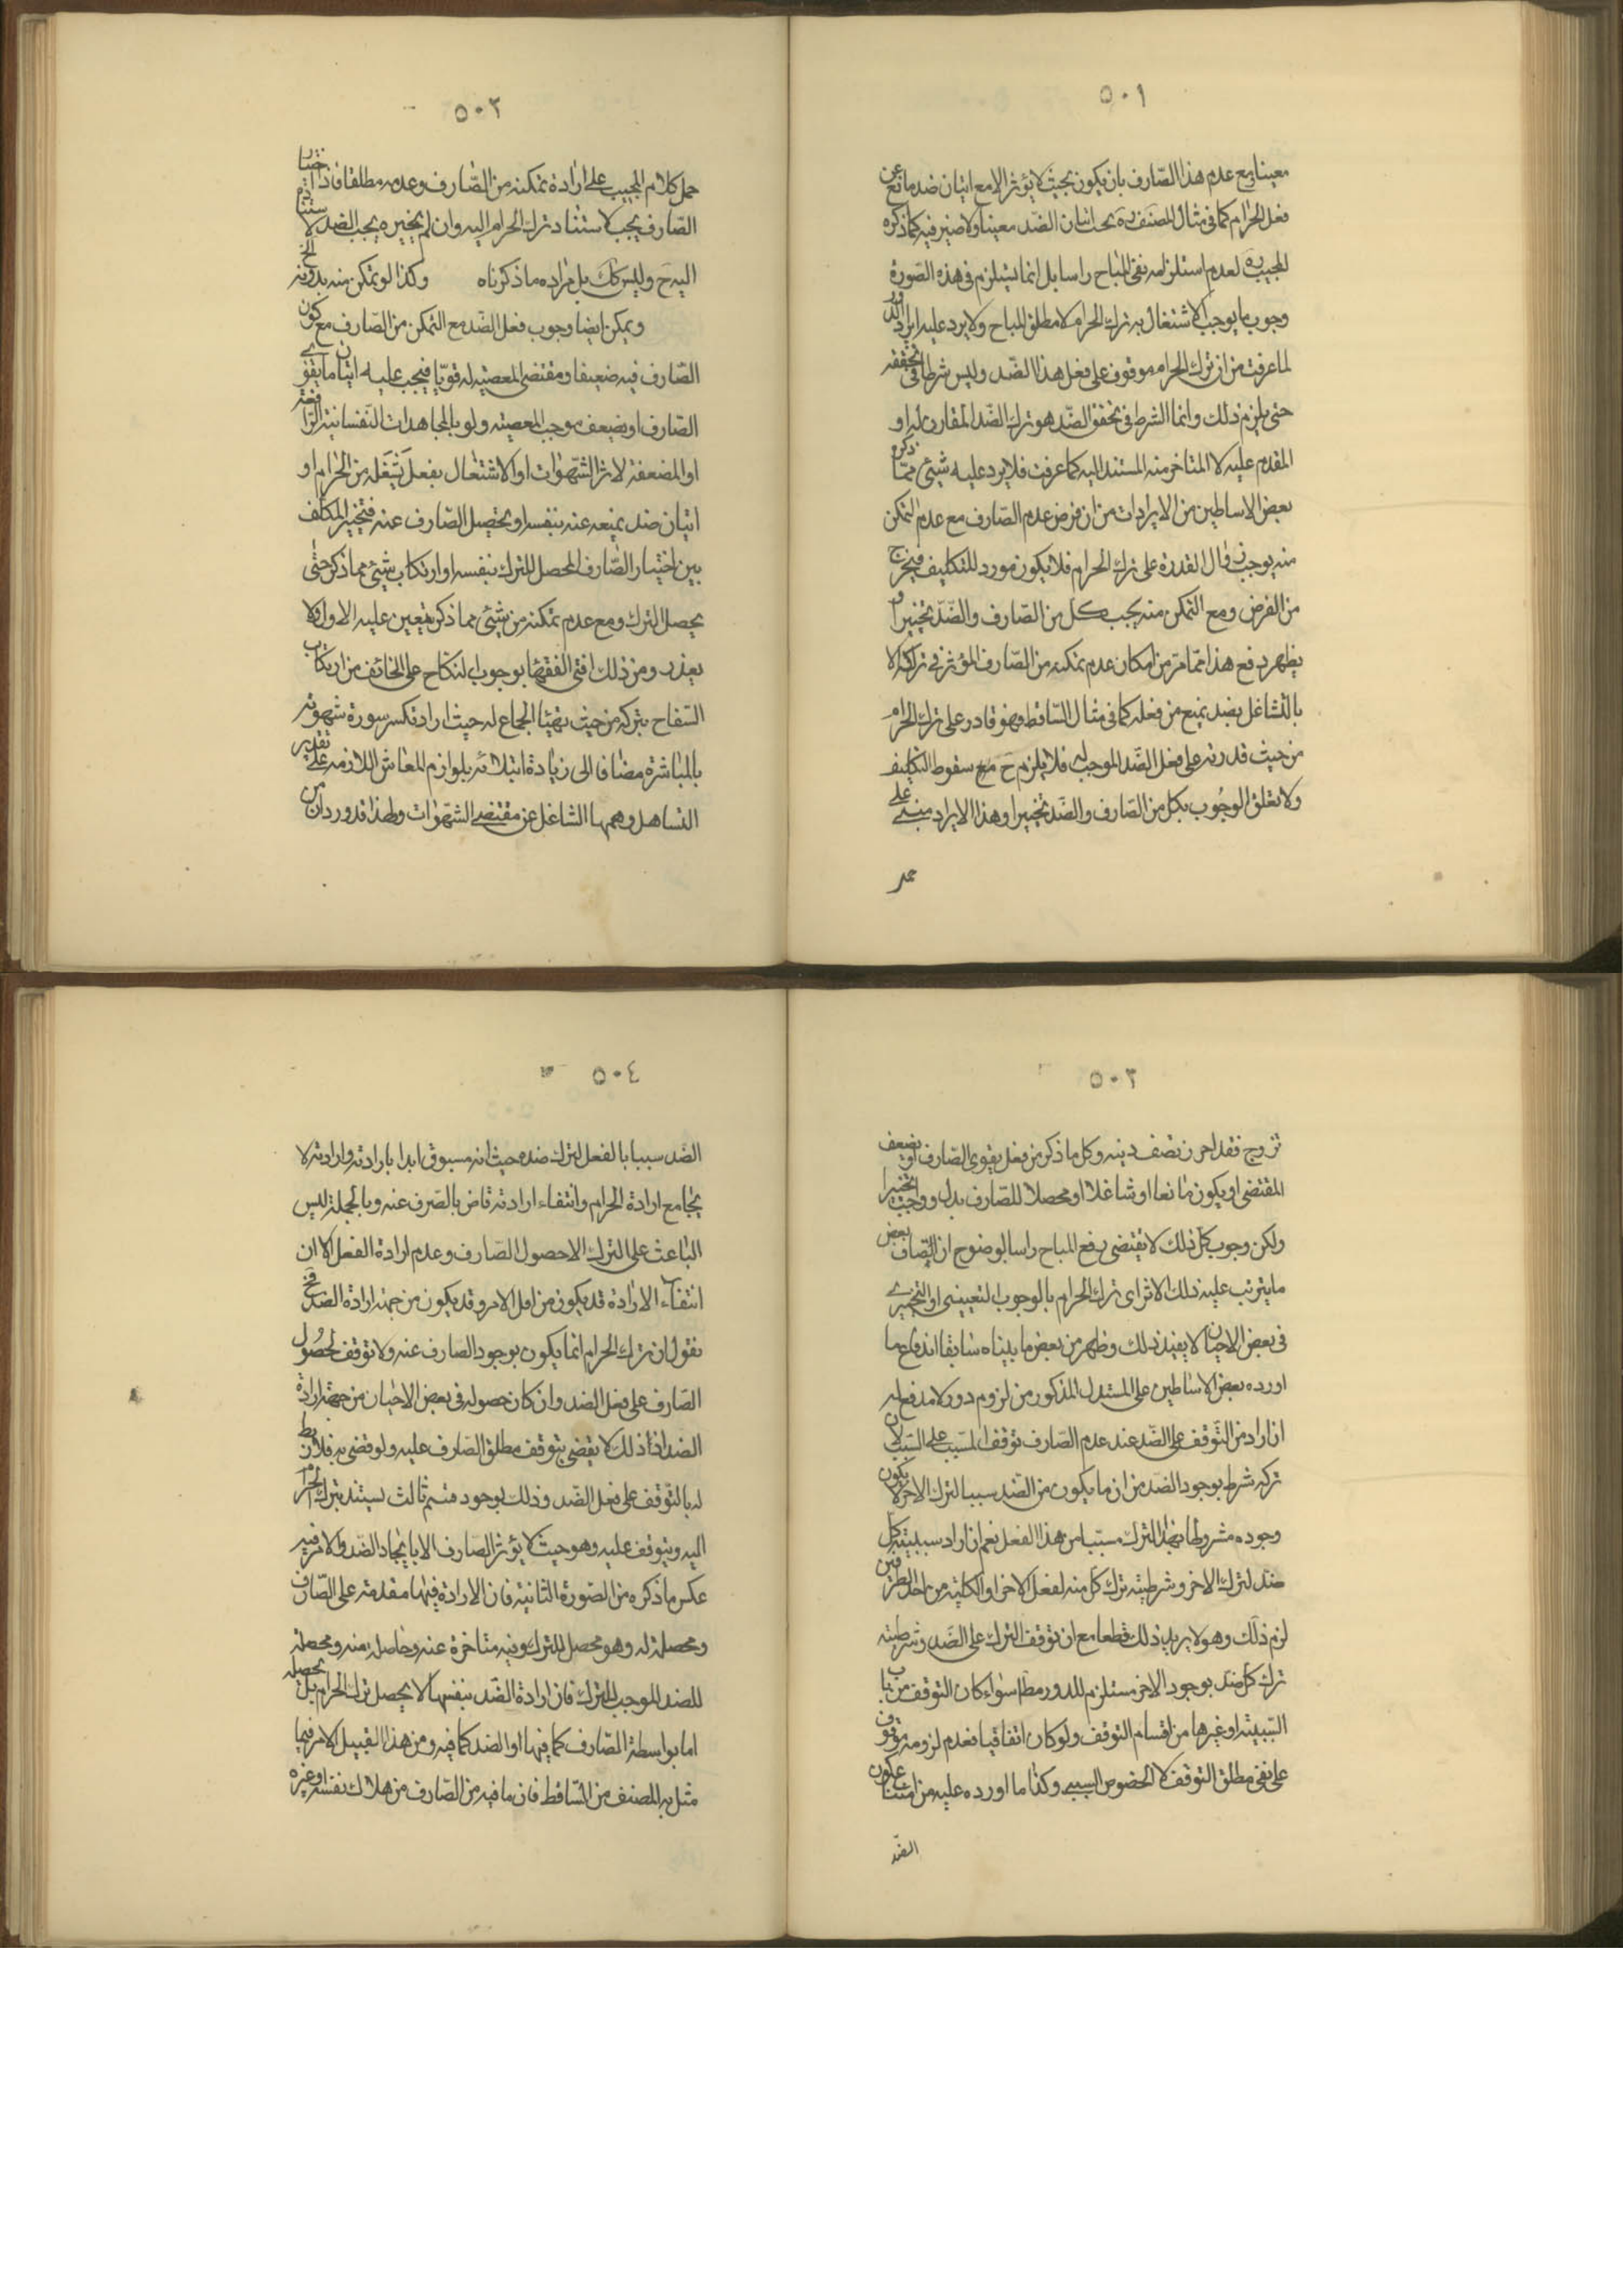 ٥٠١
معينا مع عدم هذا الصّارف بان يكون بحيث لا يؤثر الا مع اتيان ضد مانع عن
فعل الحرام كما فى مثال المصنف ره يجب اتيان الضّد معينا ولا ضير فيه كما ذكره
المجيب ره لعدم استلزامه نفى المباح راسا بل انما يستلزم فى هذه الصّورة
وجوب ما يوجب الاشتغال به ترك الحرام لا مطلق المباح ولا يرد عليه ايراد الدور
لما عرفت من ان ترك الحرام موقوف على فعل هذا الضّد وليس شرطا فى تحققه
حتى يلزم ذلك وانما الشرط فى تحقق الضّد هو ترك الضّد المقارن له او
المقدم عليه لا المتاخر منه المستند اليه كما عرفت فلا يرد عليه شيئ ممّا ذكره
بعض الاساطين من الايرادات من ان فرض عدم الصّارف مع عدم التمكن
منه يوجب زوال القدرة على ترك الحرام فلا يكون مورد للتكليف فيخرج
من الفرض ومع التمكن منه يجب كل من الصّارف والضّد تخييرا و
يظهر دفع هذا ممّا مرّ من امكان عدم تمكنه من الصّارف المؤثر فى تركه الا
بالتشاغل بضد يمنع من فعله كما فى مثال السّاقط فهو قادر على ترك الحرام
من حيث قدرته على فعل الضّد الموجب له فلا يلزم ح مع سقوط التكليف
ولا تعلق الوجوب بكل من الصّارف والضّد تخييرا وهذا الايراد مبنى على
حمل
٥٠٢
حمل كلام المجيب على ارادة تمكنه من الصّارف وعدمه مطلقا فاذا اختار
الصّارف يجب لاستناد ترك الحرام اليه وان لم يختره يجب الضد لاستناده
اليه ح وليس كك بل مراده ما ذكرناه وكذا لو تمكن منه بدونه الخ
ويمكن ايضا وجوب فعل الضّد مع التمكن من الصّارف مع كون
الصّارف فيه ضعيفا ومقتضى المعصية له قويّا فيجب عليه اتيان ما يقوى
الصّارف او يضعف موجب المعصية ولو بالمجاهدات النّفسانية الرافعة
او المضعفة لاثر الشّهوات او الاشتغال بفعل يشغله من الحرام او
اتيان ضد يمنعه عنه بنفسه او يحصل الصّارف عنه فتخير المكلف
بين اختيار الصّارف المحصل للترك بنفسه او ارتكاب شيئ مما ذكر حتى
يحصل الترك ومع عدم تمكنه من شيئ مما ذكر يتعين عليه الاول ولا
يعذر ومن ذلك افتى الفقهاء بوجوب النكاح على الخائف من ارتكاب
السّفاح بتركه من حيث تهيئا الجماع له حيث اراد تكسر سورة شهوته
بالمباشرة مضافا الى زيادة ابتلائه بلوازم المعاش اللازمة على تقدير
التساهل وهمها الشاغل عن مقتضى الشهوات ولهذا قد ورد ان من
٥٠٣
تزوج فقد احرز نصف دينه وكل ما ذكر من فعل يقوى الصّارف او يضعف
المقتضى او يكون مانعا او شاغلا او محصلا للصّارف بدل وواجب تخييرا
ولكن وجوب كل ذلك لا يقتضى رفع المباح راسا لوضوح ان اتصاف بعض
ما يترتب عليه ذلك الاثر اى ترك الحرام بالوجوب التعيينى او التخييرى
فى بعض الاحيان لا يفيد ذلك وظهر من بعض ما بيناه سابقا اندفاع ما
اورده بعض الاساطين على المستدل المذكور من لزوم دور لا مدفع له
ان اراد من التّوقف على الضّد عند عدم الصّارف توقف المسبب على السّبب لان
تركه شرط بوجود الضّد من ان ما يكون من الضّد سببا لترك الاخر لا يكون
وجوده مشروطا بهذا الترك مسبّبا من هذا الفعل نعم ان اراد سببية كل
ضد لترك الاخر وشرطية ترك كل منه لفعل الاخر او الكلية من احد الطرفين
لزم ذلك وهو لا يريد ذلك قطعا مع ان توقف الترك على الضّد وشرطية
ترك كل ضد بوجود الاخر مستلزم للدور مطا سواء كان التوقف من باب
السّببية او غيرها من اقسام التوقف ولو كان اتفاقيا فعدم لزومه موقوف
على نفى مطلق التوقف لا الخصوص السببى وكذا ما اورده عليه من امتناع كون
الضّد
٥٠٤
الضّد سببا بالفعل لترك ضده حيث انه مسبوق ابدا بارادته وارادته لا
يجامع ارادة الحرام وانتفاء ارادته قاض بالصّرف عنه وبالجملة ليس
الباعث على الترك الا حصول الصّارف وعدم ارادة الفعل الا ان
انتفاء الارادة قد يكون من اول الامر وقد يكون من جهة ارادة الضد فح
نقول ان ترك الحرام انما يكون بوجود الصارف عنه ولا توقف لحصول
الصّارف على فعل الضد وان كان حصوله فى بعض الاحيان من جهة ارادة
الضد اذ ذلك لا يقضى بتوقف مطلق الصّارف عليه ولو قضى به فلا ربط
له بالتّوقف على فعل الضّد وذلك بوجود قسم ثالث يستند ترك الحرام
اليه ويتوقف عليه وهو حيث لا يؤثر الصّارف الا بايجاد الضّد والامر فيه
عكس ما ذكره من الصّورة الثانية فان الارادة فيها مقدمة على الصّارف
ومحصلة له وهو محصل للترك وفيه متاخرة عنه وحاصلة منه ومحصلة
للضد الموجب للترك فان ارادة الضّد بنفسها لا يحصل ترك الحرام بل يحصله
اما بواسطة الصّارف كما فيها او الضد كما فيه ومن هذا القبيل الامر فيما
مثل به المصنف من السّاقط فان ما فيه من الصّارف من هلاك نفسه او غيره